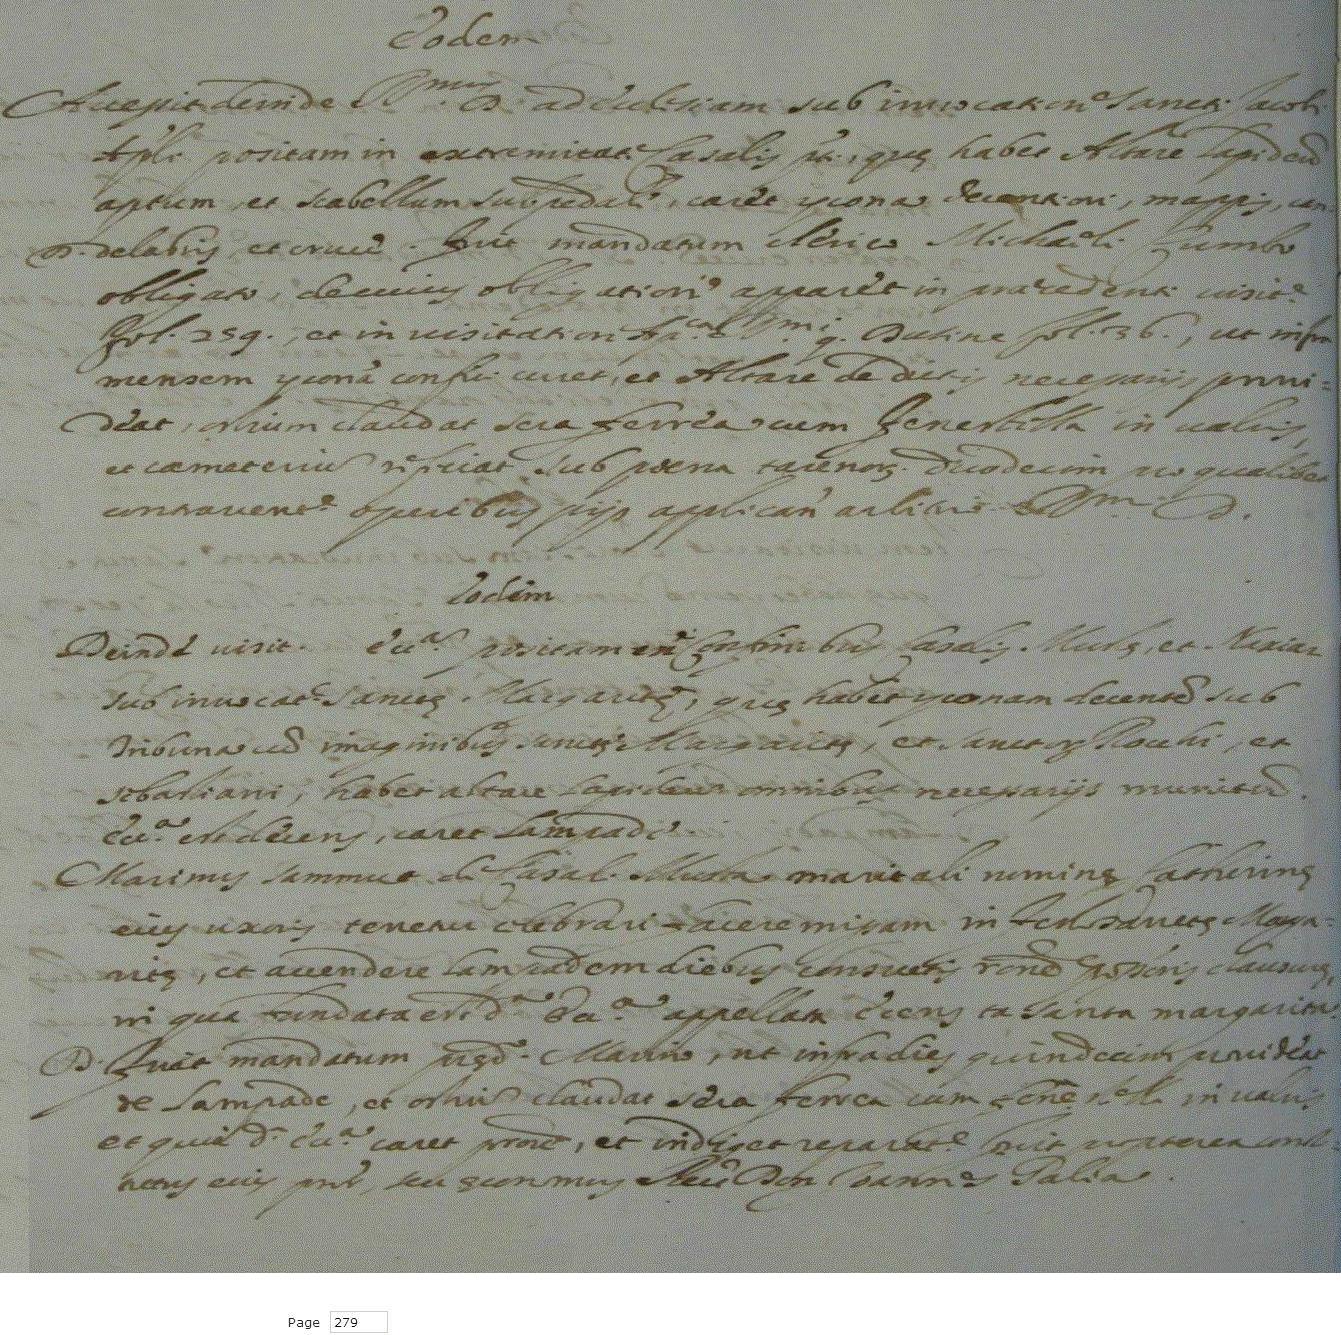 Eodem
Accessit deinde Rmus D. ad Ecclesiam sub invocatione Sancti Jacobi
Apli positam in extremitate Casalis pti, que habet Altare lapideū
aptum et scabellum subpedale, caret ycona decentiori, mappis, can
D. delabris, et cruce. Fuit mandatum clerico Michaeli Zumbo
obligato, de cuius obligatione apparet in precedenti visite
fol. 259., et in visitatione Apca Rmi q. Dusine fol. 136., ut infra
mensem yconā confici curet, et Altare de dictis necessarijs provi=
deat, ostium claudat sera ferrea cum fenestella in valvis,
et cœmeteriū reficiat sub pœna tarenos duodecim pro qualibet
contravente operibus pijs applican arbitrio Rmi D.
Eodem
Deinde visit. Ecca positam in Confinibus Casalis Muste, et Naxiar
sub invocate Sancte Margarite, que habet yconam decentē sub
tribuna cū imaginibus Sancte Margarite, et Sanctor Rocchi, et
sebastiani, habet altare lapideū omnibus necessarijs munitū.
Ecca est decens, caret lampade.
Marinus Sammut de Casal Musta maritali nomine Catherine
eius uxoris tenetur celebrari facere missam in festo Sancte Marga=
rite, et accendere lampadem diebus consuetis rōne clausure,
in qua fundata est da Ecca appellata ta Santa margarita.
D. Fuit mandatum psdo Marino, ut infra dies quindecim provideat
de lampade, et ostiū claudat sera ferrea cum fenestella in valvis
et quia da Ecca caret et indiget reparate fuit
eius seu Don Joannes Falia.
Page 279